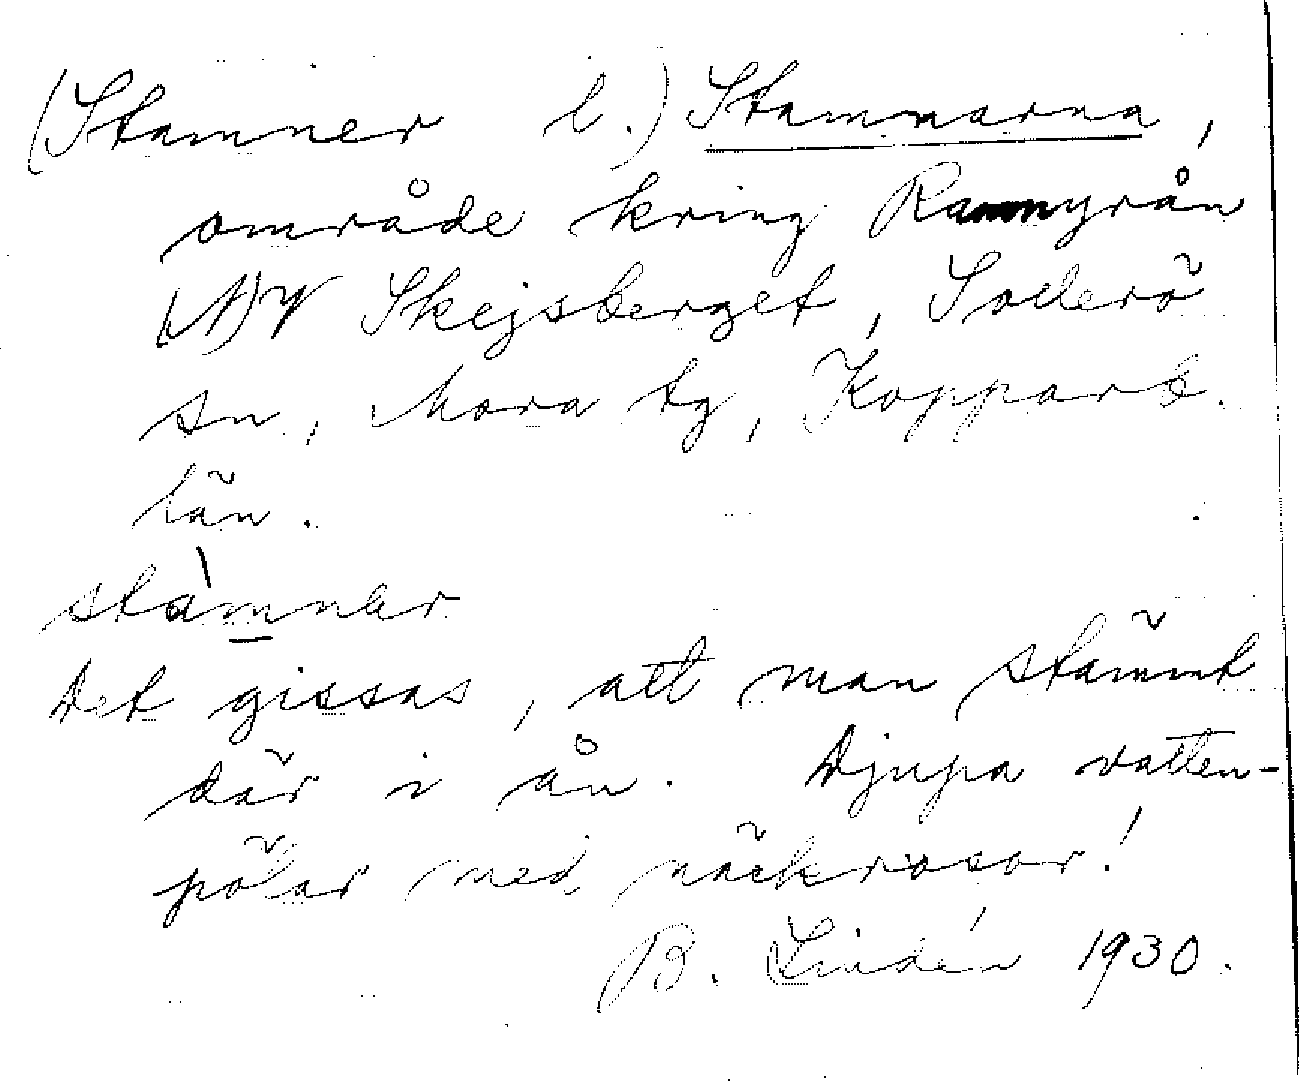 (Stamner l.) Stammarna,
område kring Rammyrån
(N)V Skejsberget, Sollerö
sn, Mora tg, Kopparb.
län.
stàmner
Det gissas, att man stämt
där i ån. Djupa vatten-
pölar med näckrosor!
B. Lindén 1930.